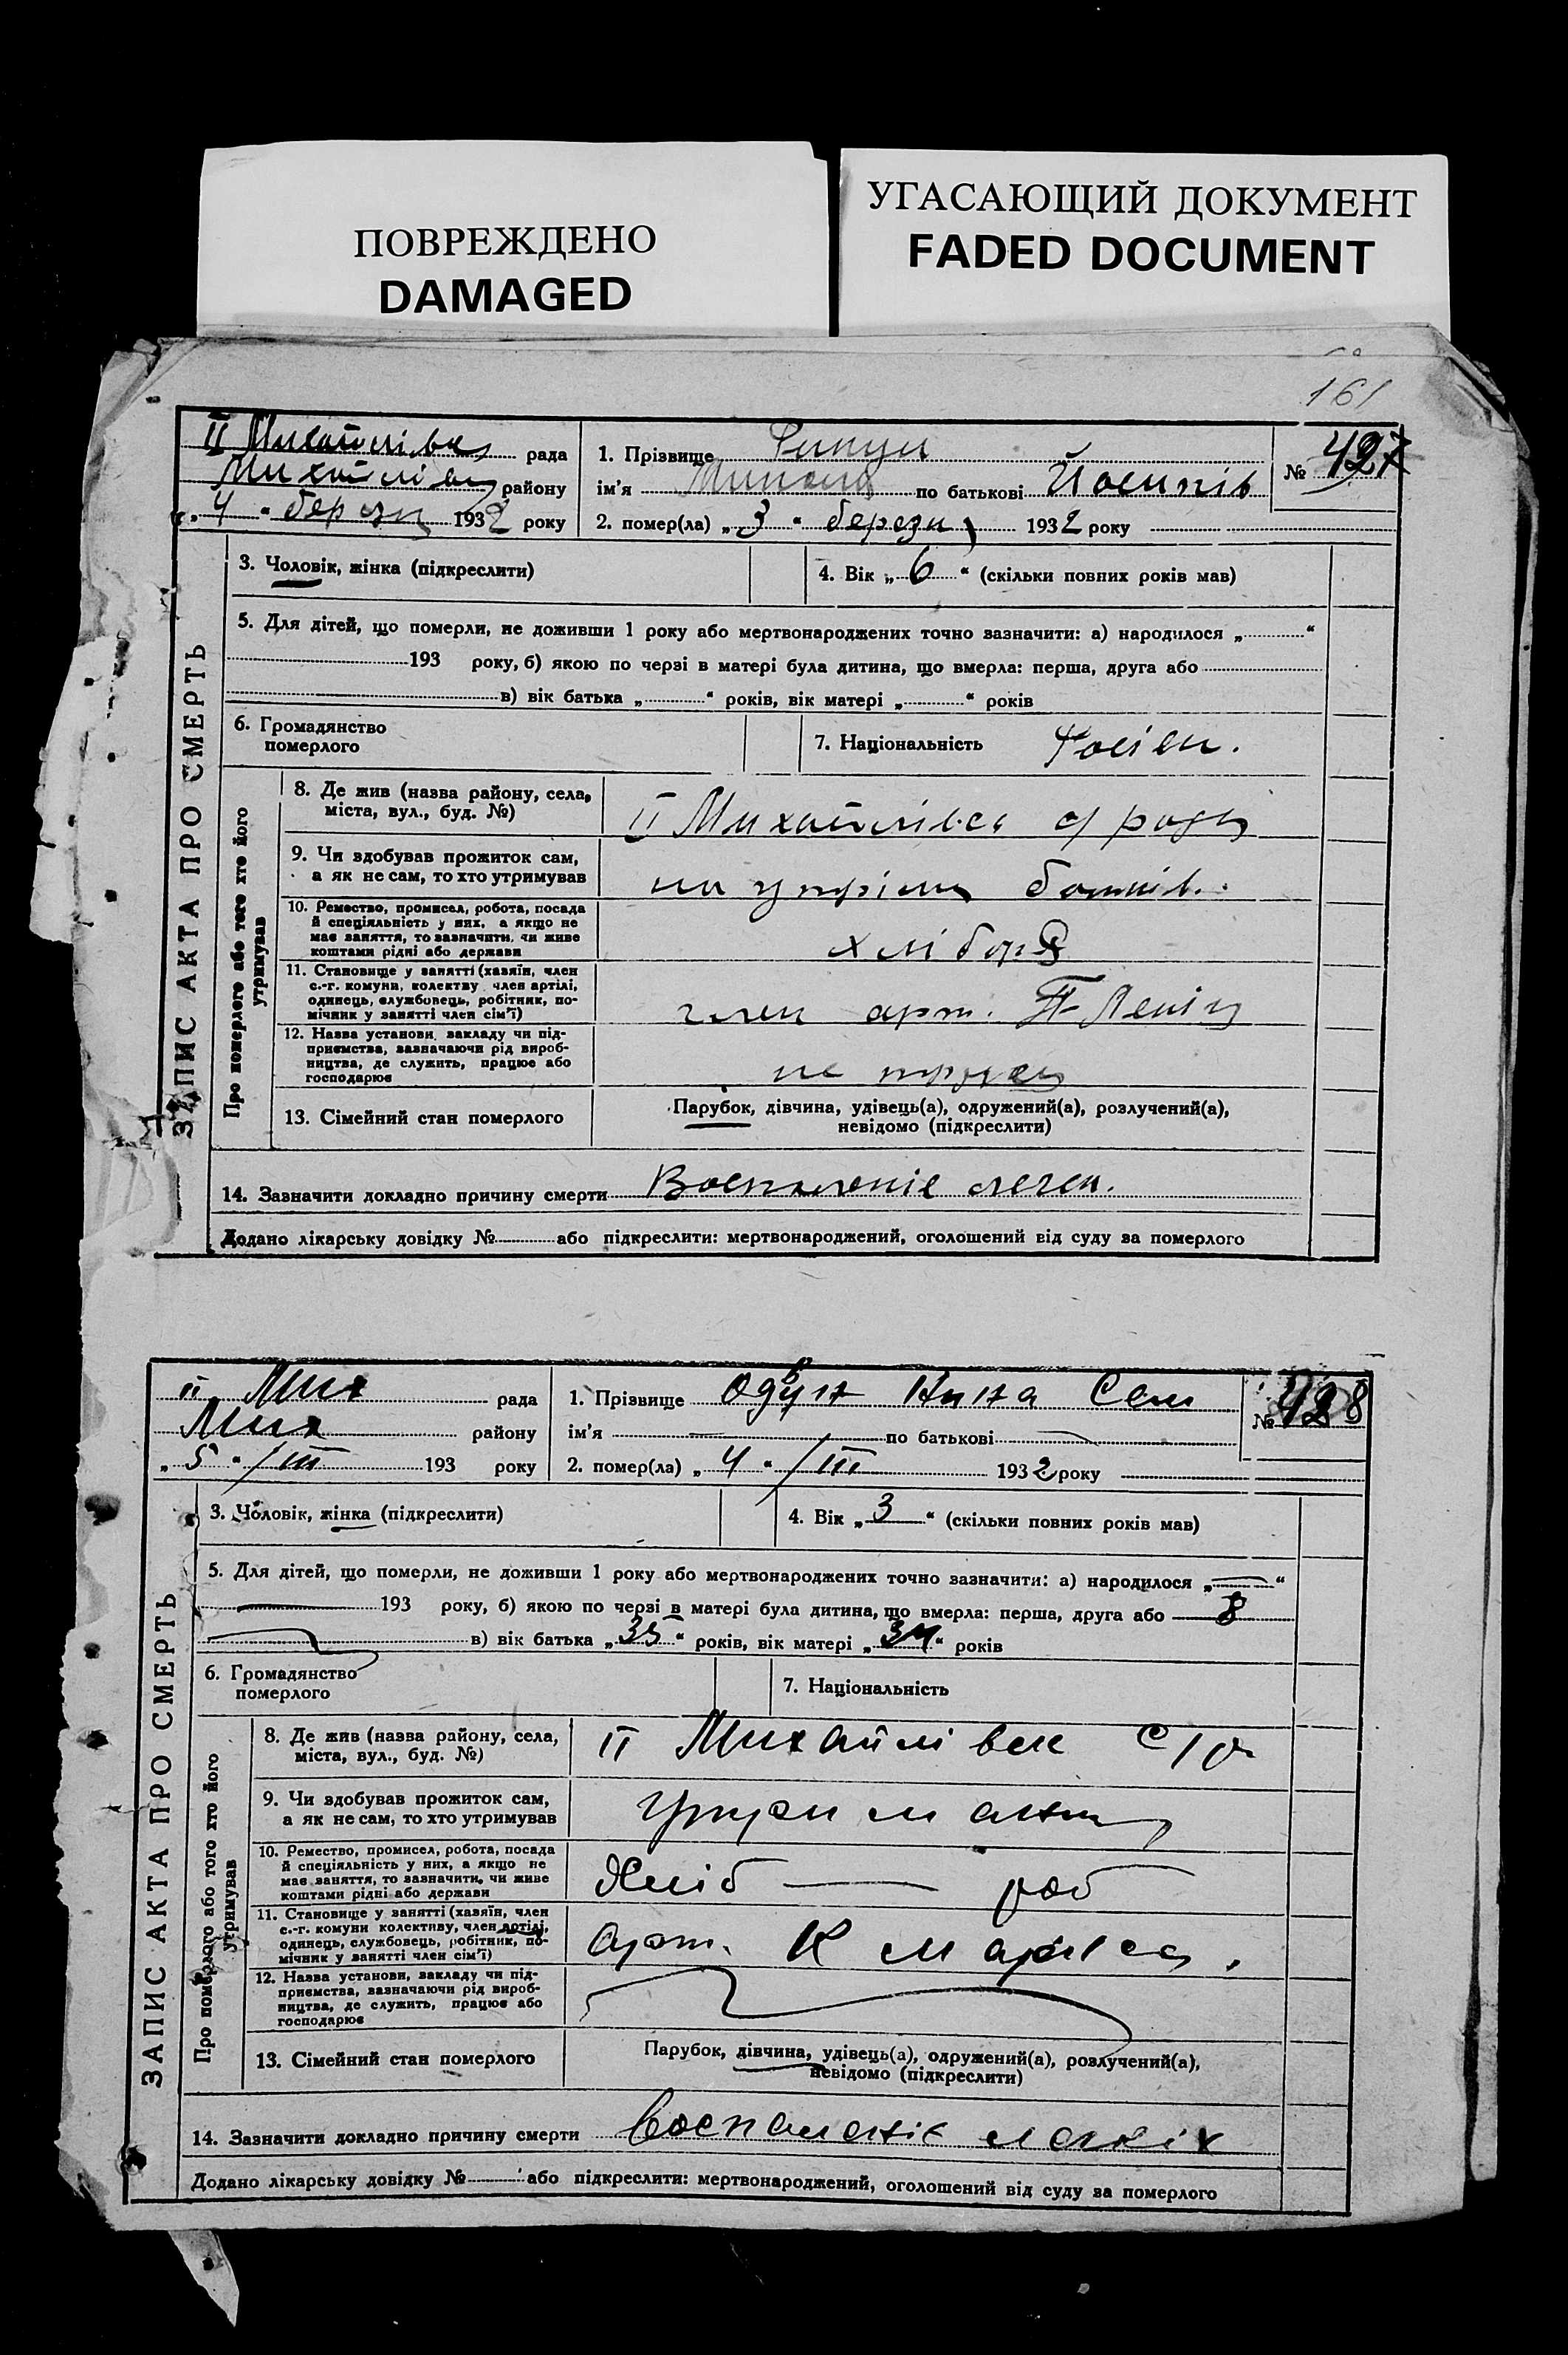 ПОВРЕЖДЕНО
DAMAGED
УГАСАЮЩИЙ ДОКУМЕНТ
FADED DOCUMENT
161
ЗАПИС АКТА ПРО СМЕРТЬ
II Михайлівка рада
Михайлівка району
„ 4 “ березня 1932 року
1. Прізвище
ім'я Микола по батькові Йосипів
№ 427
2. помер(ла) „ 3 “ березня 1932 року
3. Чоловік, жінка (підкреслити)
4. Вік „ 6 “ (скільки повних років мав)
5. Для дітей, що померли, не доживши 1 року або мертвонароджених точно зазначити: а) народилося „ “
193 року, б) якою по черзі в матері була дитина, що вмерла: перша, друга або
в) вік батька „ “ років, вік матері „ “ років
6. Громадянство
померлого
7. Національність
Про померлого або того хто його
утримував
8. Де жив (назва району, села,
міста, вул., буд. №)
II Михайлівка с/рада
9. Чи здобував прожиток сам,
а як не сам, то хто утримував
на утрімы батьків.
10. Ремество, промисел, робота, посада
й спеціяльність у них, а якщо не
має заняття, то зазначити, чи живе
коштами рідні або держави
хлібороб
11. Становище у занятті (хазяїн, член
с.-г. комуни, колективу член артілі,
одинець, службовець, робітник, по-
мічник у занятті член сім'ї)
член арт. Леніна
12. Назва установи, закладу чи під-
приємства, зазначаючи рід вироб-
ництва, де служить, працює або
господарює
не працює
13. Сімейний стан померлого
Парубок, дівчина, удівець(а), одружений(а), розлучений(а),
невідомо (підкреслити)
14. Зазначити докладно причину смерти Воспаленіе легки.
Додано лікарську довідку № або підкреслити: мертвонароджений, оголошений від суду за померлого
ЗАПИС АКТА ПРО СМЕРТЬ
II Мих рада
Мих району
„ 5 “ / III 193 року
1. Прізвище Сем
ім'я — по батькові —
№ 428
2. помер(ла) „ 4 “ / III 1932 року
3. Чоловік, жінка (підкреслити)
4. Вік „ 3 “ (скільки повних років мав)
5. Для дітей, що померли, не доживши 1 року або мертвонароджених точно зазначити: а) народилося „ — “
— 193 року, б) якою по черзі в матері була дитина, що вмерла: перша, друга або 8
в) вік батька „ 35 “ років, вік матері „ 34 “ років
6. Громадянство
померлого
7. Національність
Про померлого або того хто його
утримував
8. Де жив (назва району, села,
міста, вул., буд. №)
II Михайлівск с/р
9. Чи здобував прожиток сам,
а як не сам, то хто утримував
10. Ремество, промисел, робота, посада
й спеціяльність у них, а якщо не
має заняття, то зазначити, чи живе
коштами рідні або держави
Хліб — роб
11. Становище у занятті (хазяїн, член
с.-г. комуни колективу, член артілі,
одинець, службовець, робітник, по-
мічник у занятті член сім'ї)
Арт. К Маркса,
12. Назва установи, закладу чи під-
приємства, зазначаючи рід вироб-
ництва, де служить, працює або
господарює
13. Сімейний стан померлого
Парубок, дівчина, удівець(а), одружений(а), розлучений(а),
невідомо (підкреслити)
14. Зазначити докладно причину смерти Воспаленіє
Додано лікарську довідку № або підкреслити: мертвонароджений, оголошений від суду за померлого